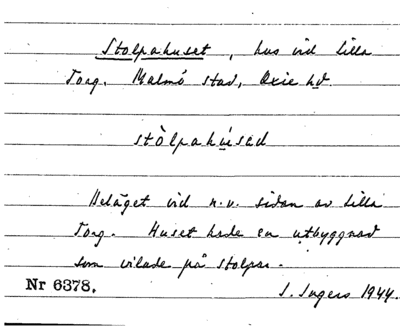 Stolpahuset, hus vid Lilla
Torg. Malmö stad, Oxie hd.
stòlpahúsəd
Beläget vid n.v. sidan av Lilla
Torg. Huset hade en utbyggnad
som vilade på stolpar.
Nr 6378.
I. Ingers 1944.